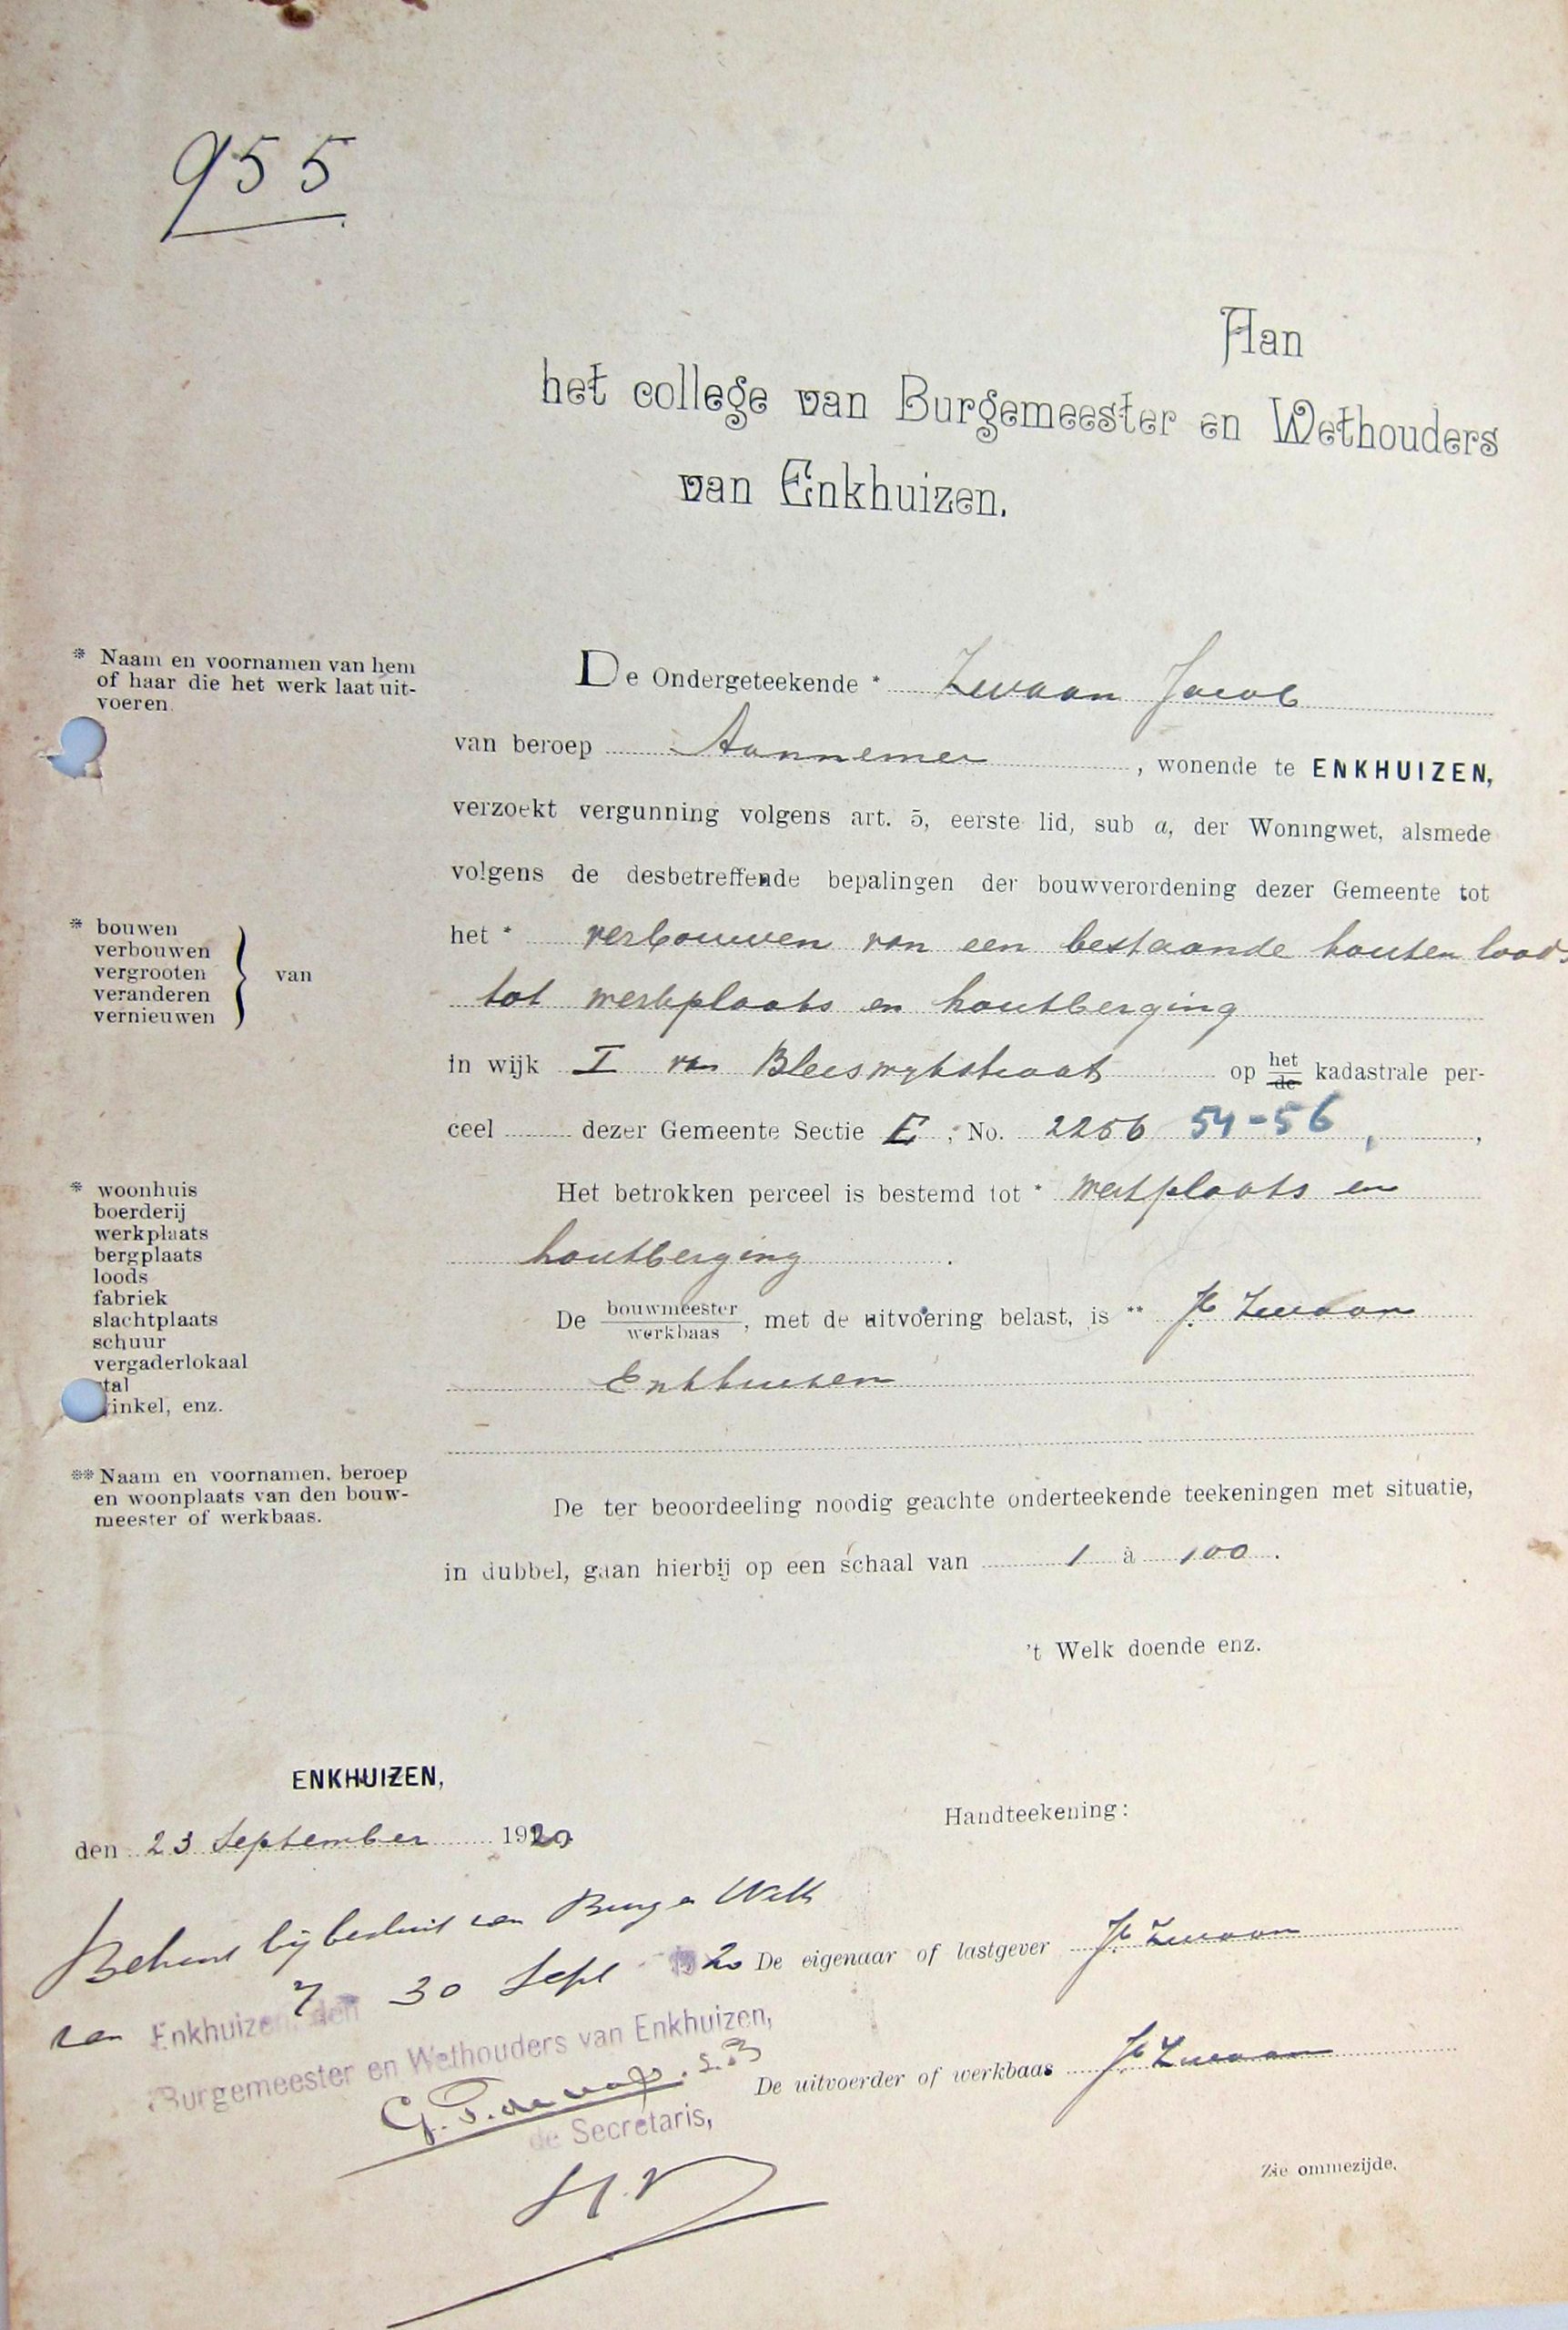 955
Aan
het college van Burgemeester en Wethouders
van Enkhuizen.
* Naam en voornamen van hem
of haar die het werk laat uit-
voeren.
De Ondergeteekende * Zwaan Jacob
van beroep Aannemer, wonende te ENKHUIZEN,
verzoekt vergunning volgens art. 5, eerste lid, sub a, der Woningwet, alsmede
volgens de desbetreffende bepalingen der bouwverordening dezer Gemeente tot
* bouwen
verbouwen
vergrooten
veranderen
vernieuwen
van
het * verbouwen van een bestaande houten loods
tot werkplaats en houtberging
in wijk I van Bleiswykstraat op het/de kadastrale per-
ceel dezer Gemeente Sectie E, No. 2256 54-56,
* woonhuis
boerderij
werkplaats
bergplaats
loods
fabriek
slachtplaats
schuur
vergaderlokaal
stal
winkel, enz.
Het betrokken perceel is bestemd tot * werkplaats en
houtberging.
De bouwmeester/werkbaas, met de uitvoering belast, is ** Jb Zwaan
Enkhuizen
** Naam en voornamen, beroep
en woonplaats van den bouw-
meester of werkbaas.
De ter beoordeeling noodig geachte onderteekende teekeningen met situatie,
in dubbel, gaan hierbij op een schaal van 1 à 100.
't Welk doende enz.
ENKHUIZEN,
den 23 September 1920
Handteekening:
bij besluit van Burg en Weth
van Enkhuizen, den 30 Sept 1920
De eigenaar of lastgever Jb Zwaan
Burgemeester en Wethouders van Enkhuizen,
De uitvoerder of werkbaas Jb Zwaan
de Secretaris,
Zie ommezijde.